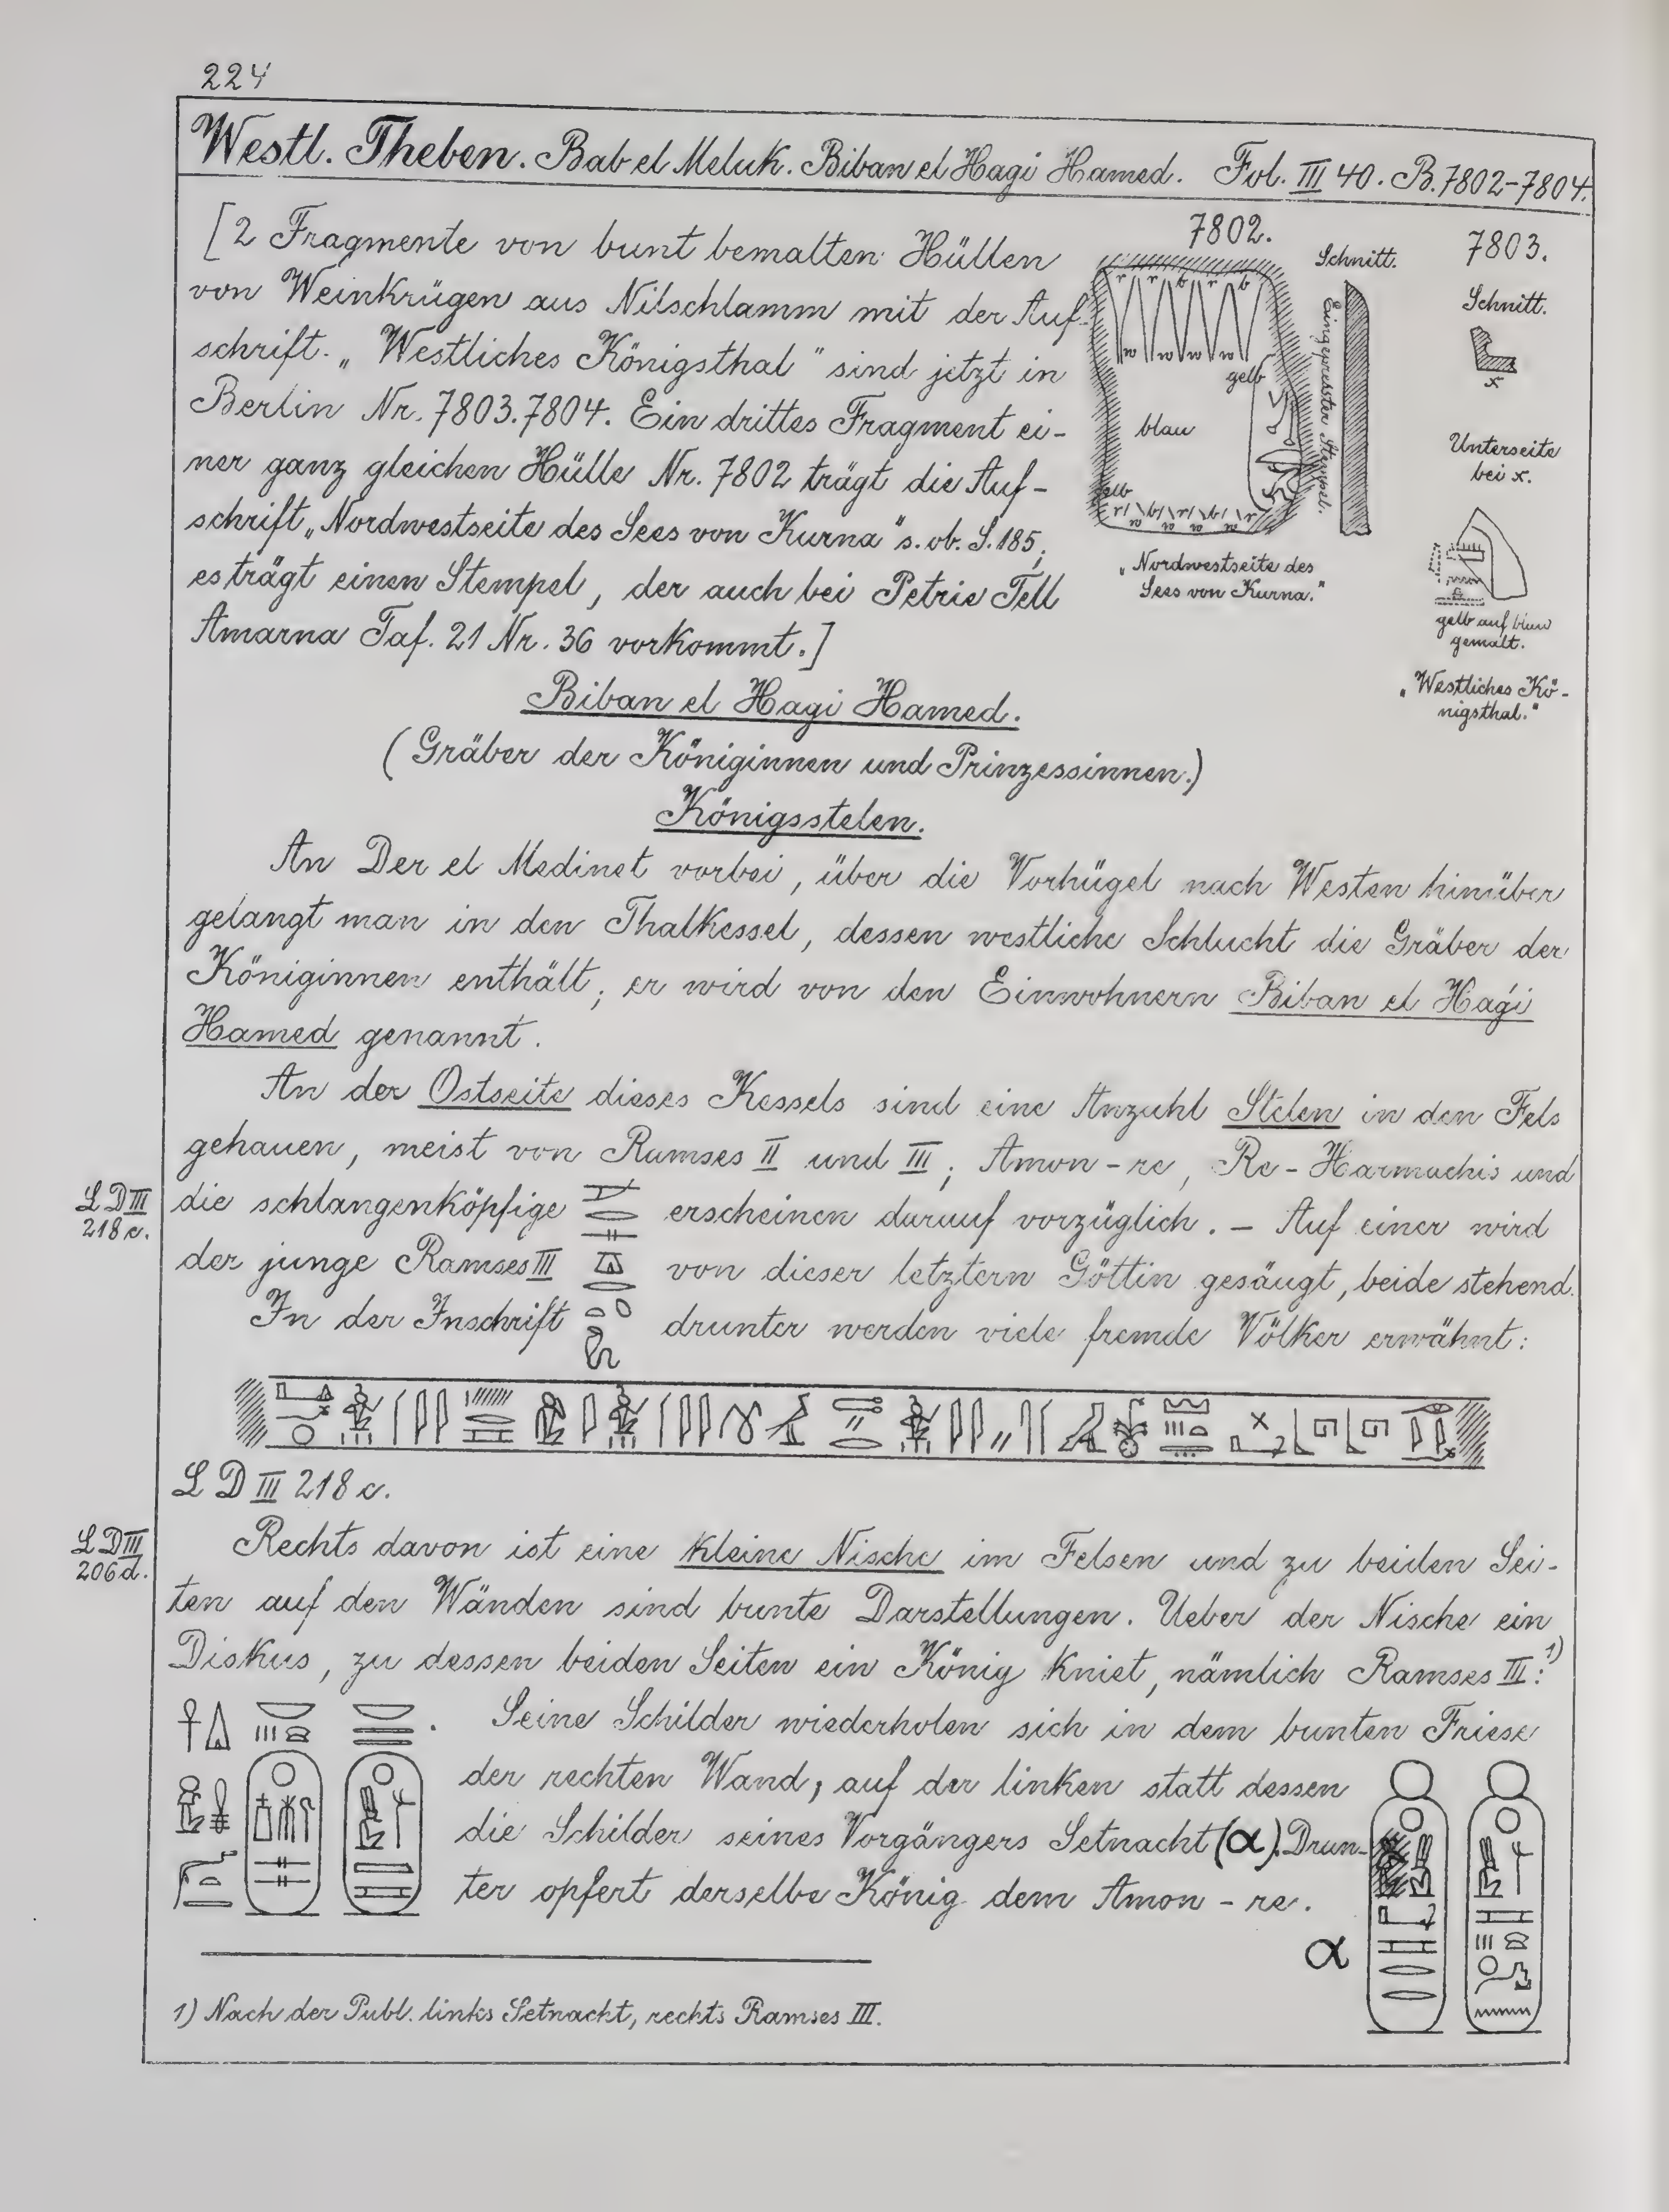 224
Westl. Theben. Bab el Meluk. Biban el Hagi Hamed. Fol. III 40. B. 7802-7804.
[2 Fragmente von bunt bemalten Hüllen
von Weinkrügen aus Nilschlamm mit der Auf-
schrift „Westliches Königsthal" sind jetzt in
Berlin Nr. 7803.7804. Ein drittes Fragment ei-
ner ganz gleichen Hülle Nr. 7802 trägt die Auf-
schrift „Nordwestseite des Sees von Kurna" s. ob. S. 185;
es trägt einen Stempel, der auch bei Petrie Tell
Amarna Taf. 21 Nr. 36 vorkommt.]
7802.
r r b r b
w w w w
gelb
blau
gelb
r b r b r
w w w w
Schnitt.
Eingepresster Stempel.
„Nordwestseite des
Sees von Kurna."
7803.
Schnitt.
x
Unterseite
bei x.
gelb auf blau
gemalt.
„Westliches Kö-
nigsthal."
Biban el Hagi Hamed.
(Gräber der Königinnen und Prinzessinnen.)
Königsstelen.
An Der el Medinet vorbei, über die Vorhügel nach Westen hinüber
gelangt man in den Thalkessel, dessen westliche Schlucht die Gräber der
Königinnen enthält; er wird von den Einwohnern Biban el Haġi
Hamed genannt.
An der Ostseite dieses Kessels sind eine Anzahl Stelen in den Fels
gehauen, meist von Ramses II und III; Amon-re, Re-Harmachis und
LD III
218c.
die schlangenköpfige erscheinen darauf vorzüglich. – Auf einer wird
der junge Ramses III von dieser letztern Göttin gesäugt, beide stehend.
In der Inschrift drunter werden viele fremde Völker erwähnt:
LD III 218 c.
LD III
206d.
Rechts davon ist eine kleine Nische im Felsen und zu beiden Sei-
ten auf den Wänden sind bunte Darstellungen. Ueber der Nische ein
Diskus, zu dessen beiden Seiten ein König kniet, nämlich Ramses III:1)
. Seine Schilder wiederholen sich in dem bunten Friese
der rechten Wand, auf der linken statt dessen
die Schilder seines Vorgängers Setnacht (α). Drun-
ter opfert derselbe König dem Amon-re.
α
1) Nach der Publ. links Setnacht, rechts Ramses III.